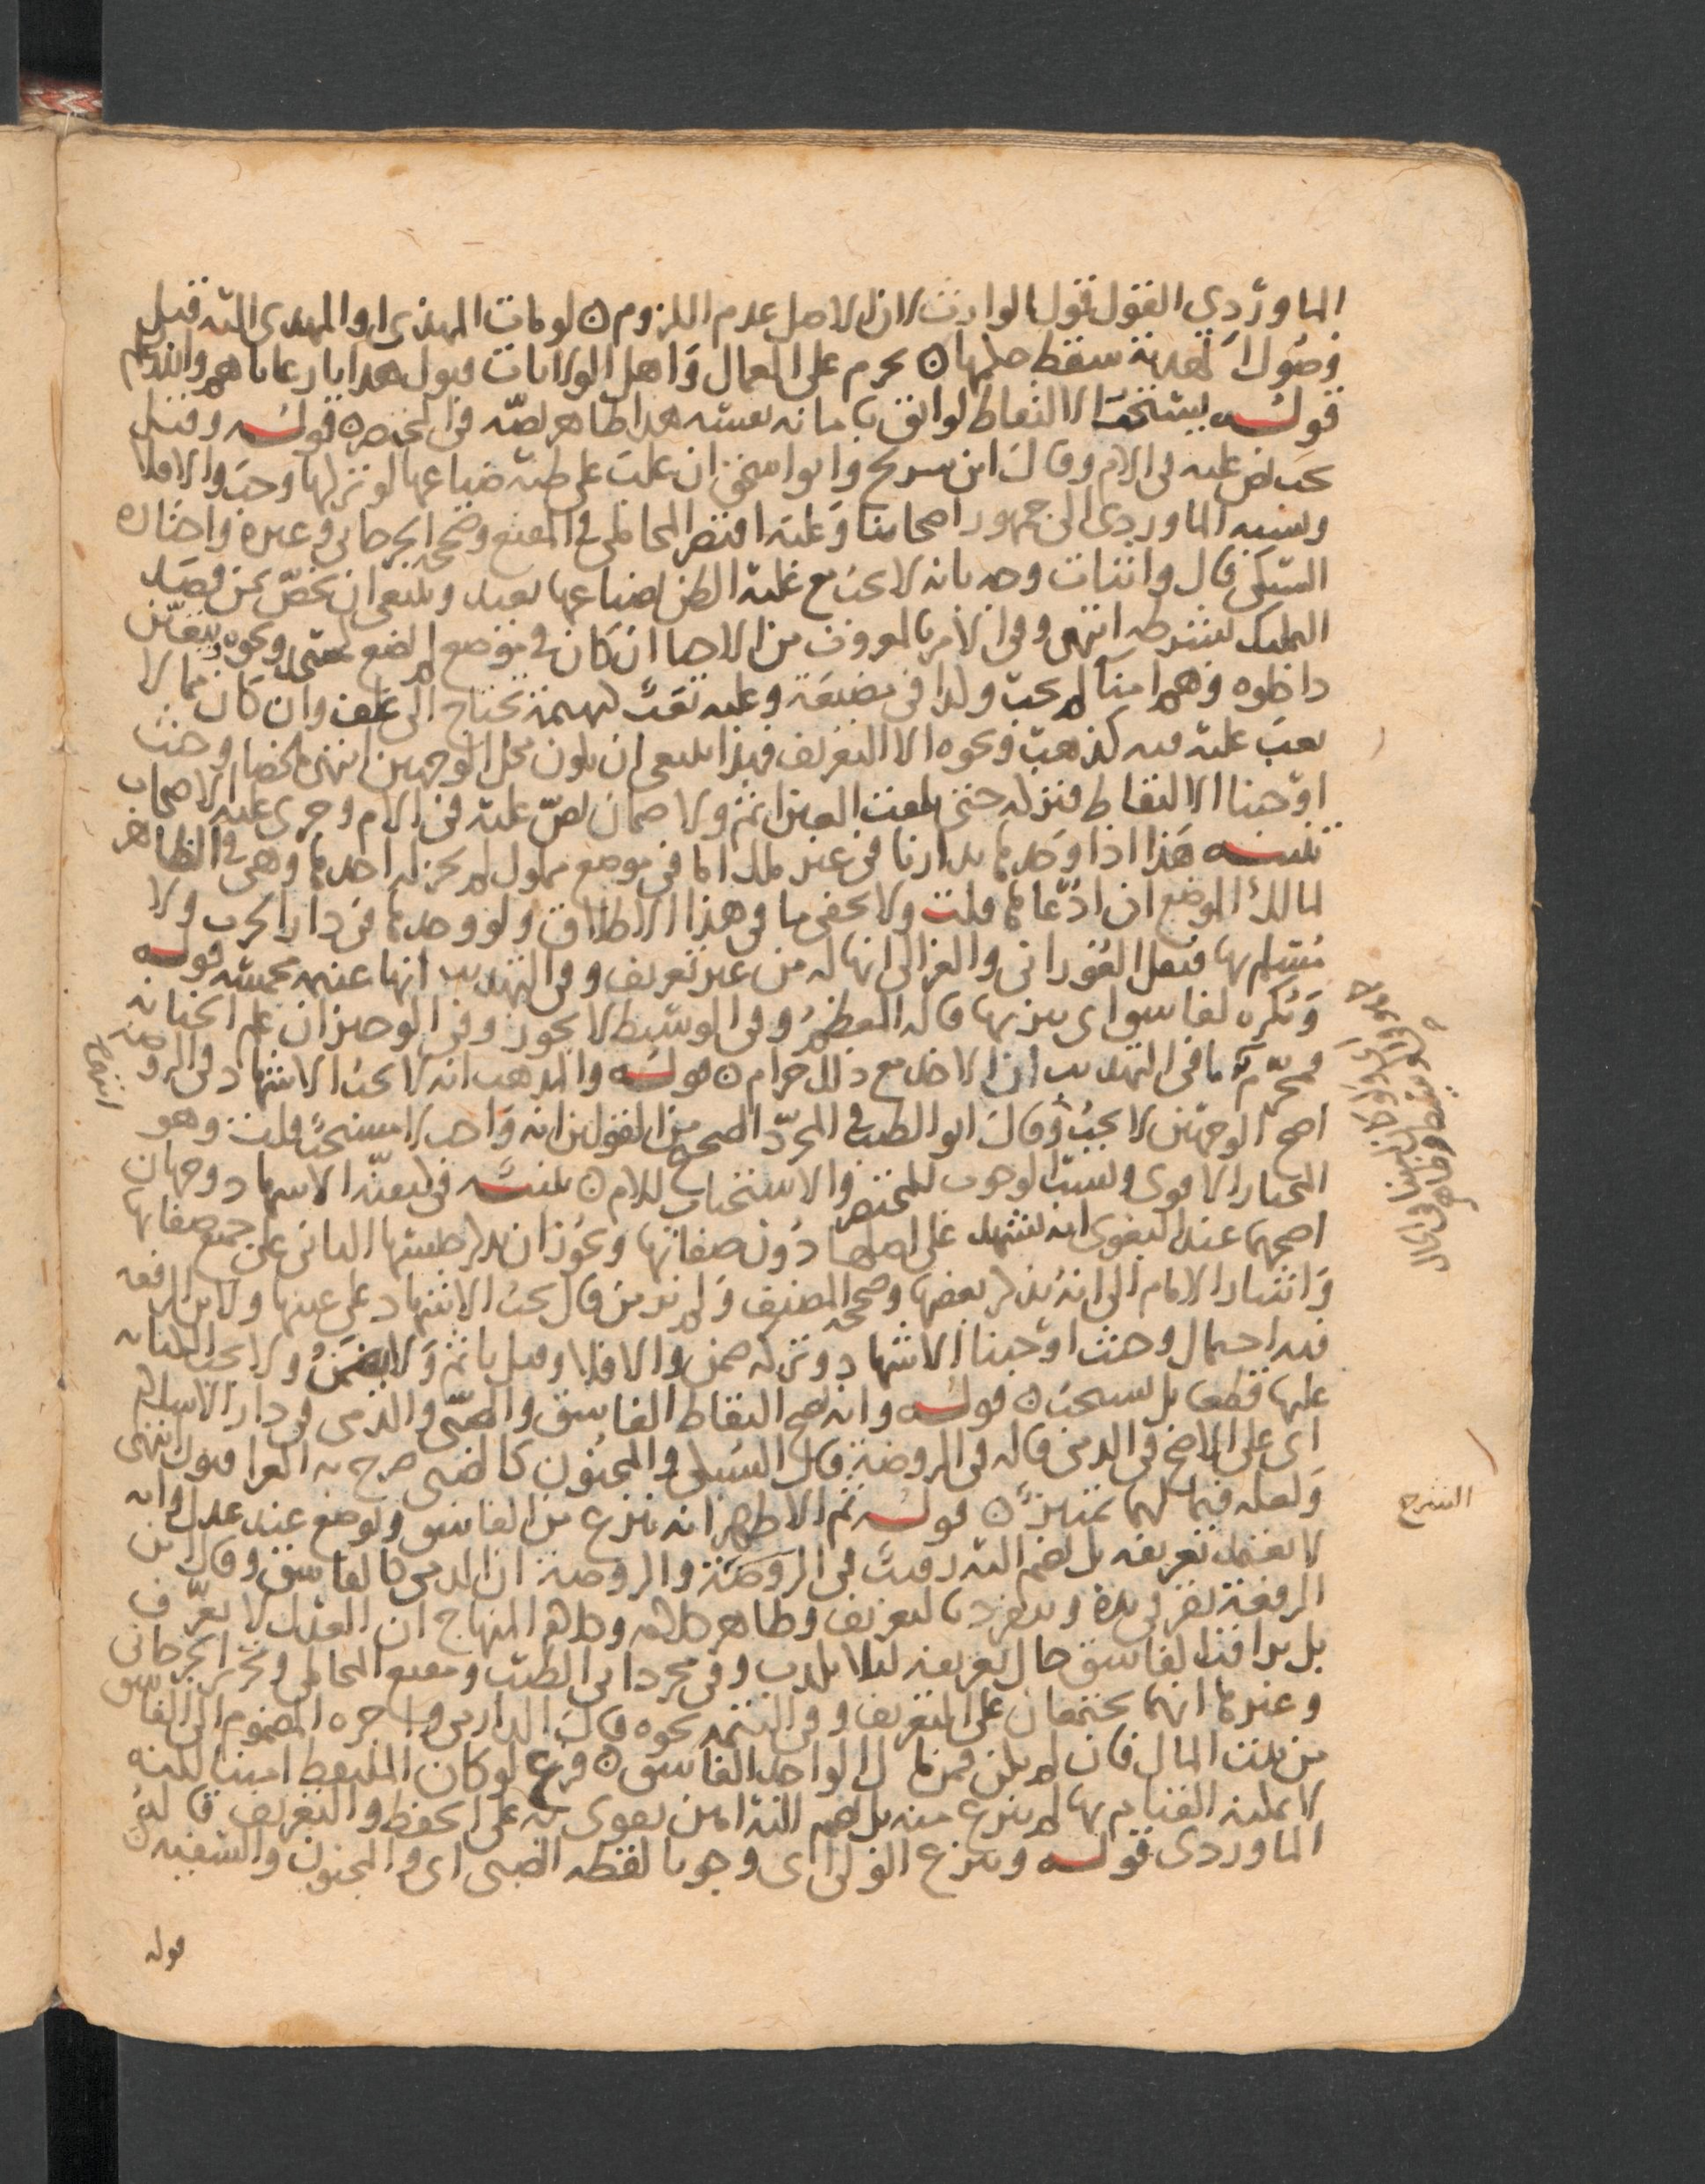 الماوردي القول قول الوارث لان الاصل عدم اللزوم ن لو مات المهدي او المهدى اليه قبل
وصول الهدية سقط حكمها ن يحرم على العمال واهل الولايات قبول هدايا رعاياهم والله اعلم
قوله يستحب الالتقاط لواثق بامانة نفسه هذا ظاهر نصه في المختصر ن قوله وقيل
يجب نص عليه في الام وقال ابن سريج وابو اسحق ان غلب على ظنه ضياعها لو تركها وجب والا فلا
ونسبه الماوردي الى جمهور اصحابنا وعليه اقتصر المحاملي في المقنع وصححه الجرجاني وغيره واختاره
السبكي قال واثبات وجه بانه لا يجب مع غلبة الظن لضياعها بعيد وينبغي ان يخص بمن قصد
التملك بشرطه انتهى وفي الامر بالمعروف من الاحيا ان كان في موضع لم يضع كمسجد ونحوه يتعين
داخلوه وهم امنا لم يجب ولذا في مضيعة وعليه تعب كبهيمة تحتاج الى علف وان كان مما لا
تعب عليه فيه كذهب ونحوه الا التعريف فهذا ينبغي ان يكون محل الوجهين انتهى ملخصا وحيث
اوجبنا الالتقاط فتركه حتى تلفت العين اثم ولا ضمان نص عليه في الام وجرى عليه الاصحاب
تنبيه هذا اذا وجدها بدارنا في غير ملك اما في موضع مملوك لم يجز له اخذها وهي في الظاهر
لمالك الموضع ان ادعاها قلت ولا يخفى ما في هذا الاطلاق ولو وجدها في دار الحرب ولا
مسلم بها فنقل الفوراني والغزالي انها له من غير تعريف وفي التهذيب انها غنيمة مخمسة قوله
ويكره لفاسق اي تنزيها قاله المعظم وفي الوسيط لا يجوز وفي الوجيز ان علم الخيانة
فمحرم ما في التهذيب ان الاخذ مع ذلك حرام ن قوله والمذهب انه لا يجب الاشهاد في الروضة
اصح الوجهين لا يجب وقال ابو الطيب في المجرد الصحيح من القولين انه واجب لا مستحب قلت وهو
المختار الاقوى ونسبة الوجوب للمختصر والاستحباب للام ن تنبيه في كيفية الاشهاد وجهان
اصحهما عند البغوي انه يشهد على اصلها دون صفاتها ويجوز ان يذكر جنسها الثاني على جميع صفاتها
واشار الامام الى انه يذكر بعضها وصححه المصنف ولم يرد من قال يجب الاشهاد على عينها ولابن الرفعة
فيه احتمال وحيث اوجبنا الاشهاد وتركه ضمن والا فلا وقيل ياثم ولا يضمن ولا يجب الكتابة
عليها قطعا بل تستحب ن قوله وانه يصح التقاط الفاسق والصبي والذمي في دار الاسلام
اي على الاصح في الذمي قاله في الروضة قال السبكي والمجنون كالصبي صرح به العراقيون انتهى
ولعله فيما لهما تمييز ن قوله ثم الاظهر انه ينزع من الفاسق ويوضع عند عدل وانه
لا يعتمد تعريفه بل يضم اليه رقيب في الروضة والروضة ان الذمي كالفاسق وقال ابن
الرفعة تقر في يده وينفرد بالتعريف وظاهر كلامه وكلام المنهاج ان العدل لا يعرف
بل يراقب الفاسق حال تعريفه لئلا يكذب وفي مجرد ابي الطيب ومقنع المحاملي وتحرير الجرجاني
وغيرها انهما يجتمعان على التعريف وفي التتمة نحوه قال الدارمي واجرة المضموم الى الفاسق
من بيت المال فان لم يكن فمن مال الواجد الفاسق ن فرع لو كان الملتقط امينا لكنه
لا يمكنه القيام بها لم ينزع منه بل يضم اليه امين يقوى به على الحفظ والتعريف قاله
الماوردي قوله وينزع الولي اي وجوبا لقطة الصبي اي والمجنون والسفيه ن
الشرح
قوله